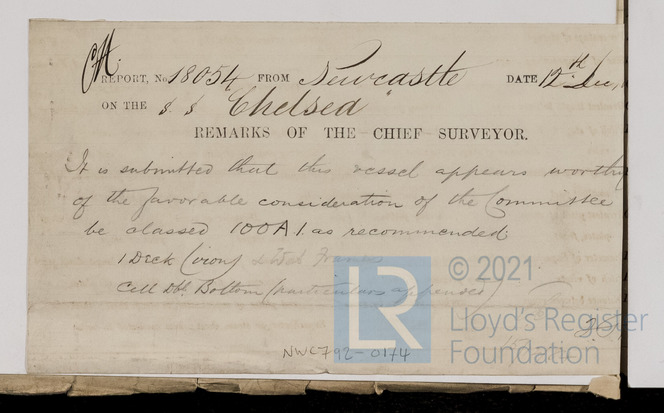 REPORT, No 18054 FROM Newcastle DATE 12th Dec,
ON THE S.S "Chelsea"
REMARKS OF THE CHIEF SURVEYOR.
It is submitted that this vessel appears worthy
of the favorable consideration of the Committee
be classed 100A1. as recommended.
1 Deck (iron) Frames
Cell Dbl Bottom (particulars appended)
LR
© 2021
Lloyd's Register
Foundation
NWC792-0174